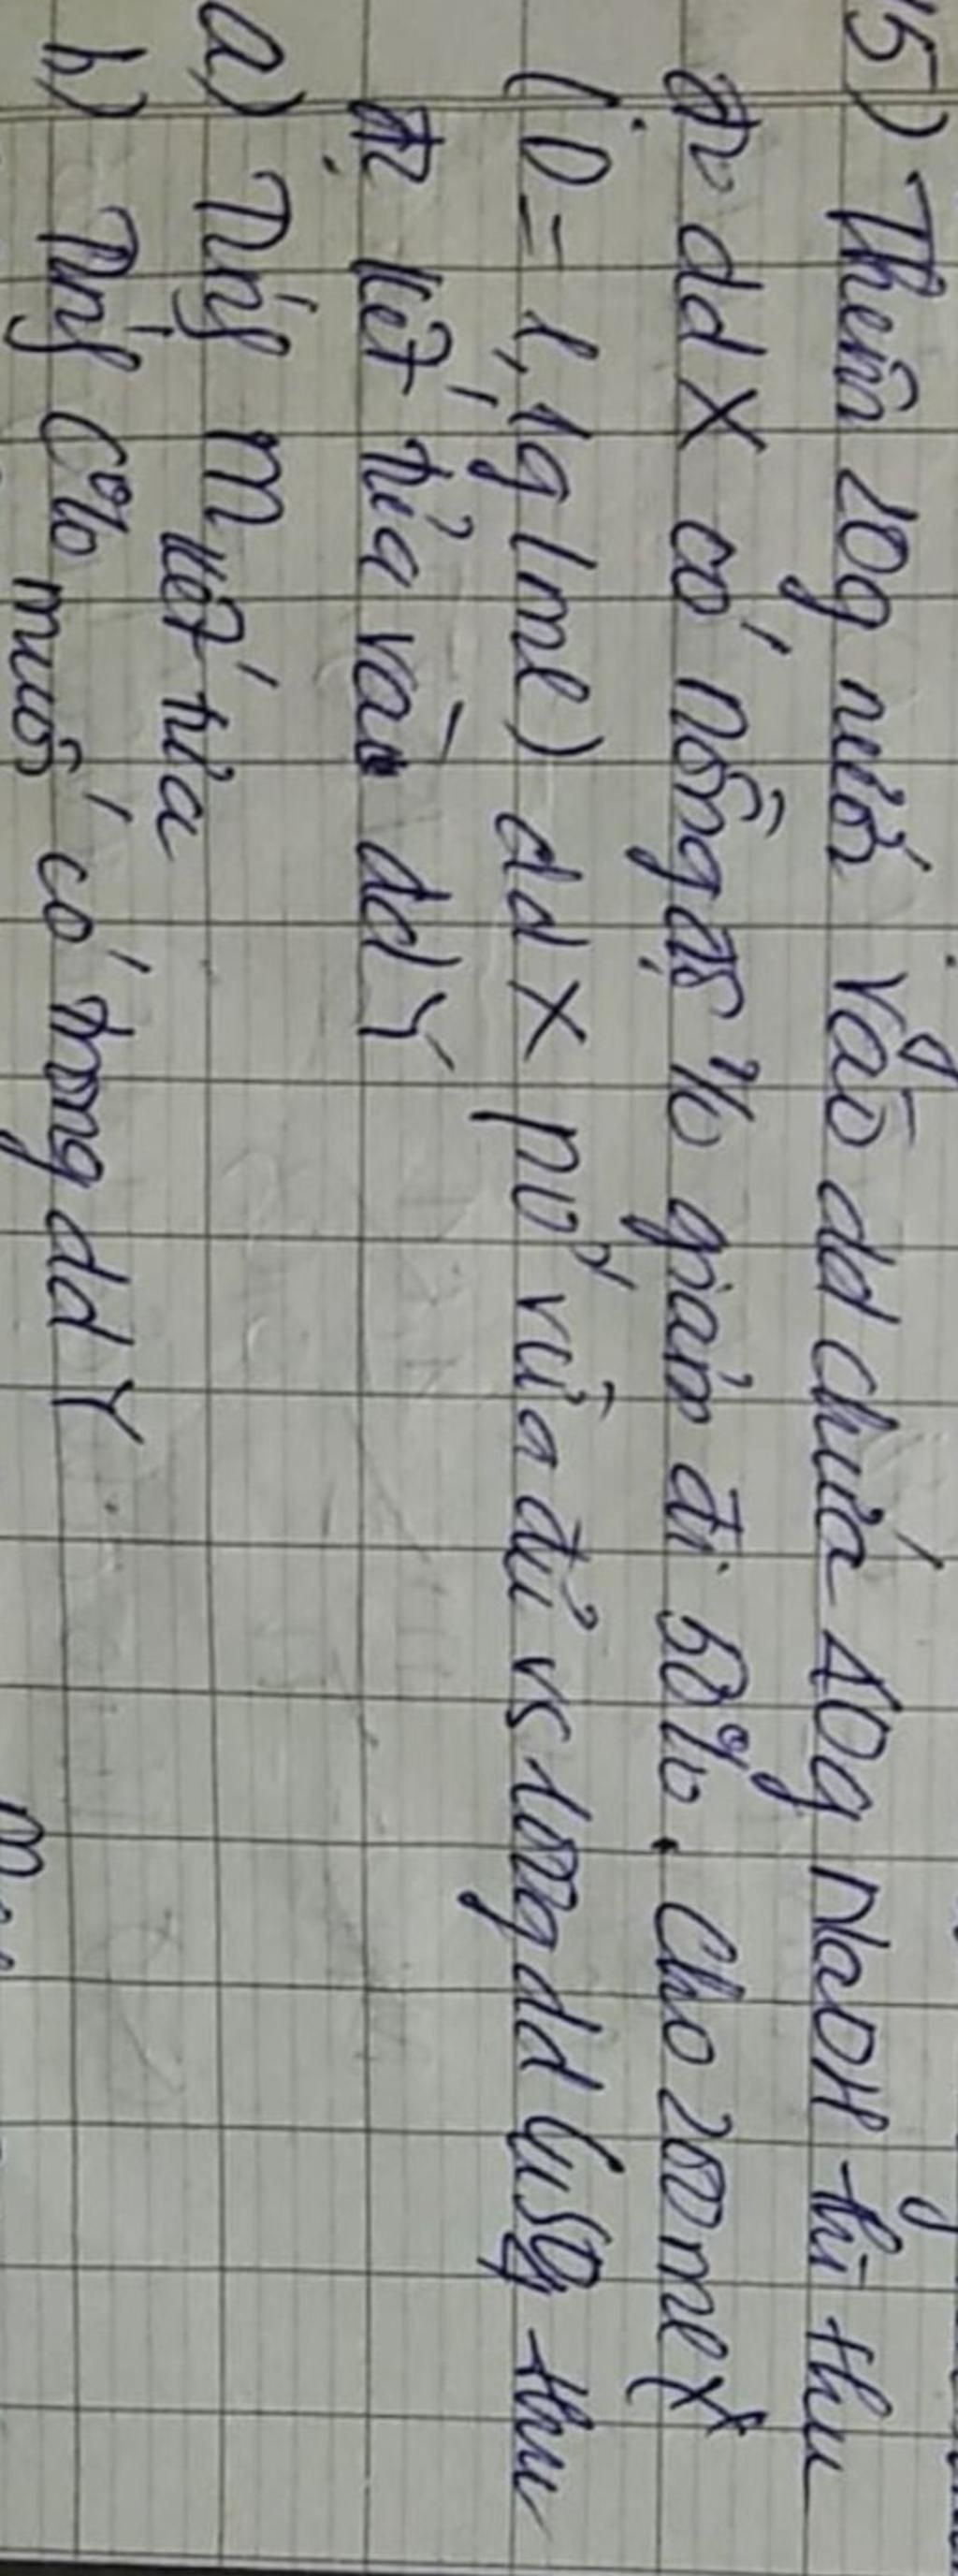 15) Thêm 20g nước vào dd chứa 40g NaOH thì thu
đc dd X có nồng độ % giảm đi 50%. Cho 200ml (X
(D = 1,1g/ml) dd X pứ vừa đủ vs 100g dd CuSO4 thu
đc kết tủa và dd Y
a) Tính m kết tủa
b) Tính C% muối có trong dd Y